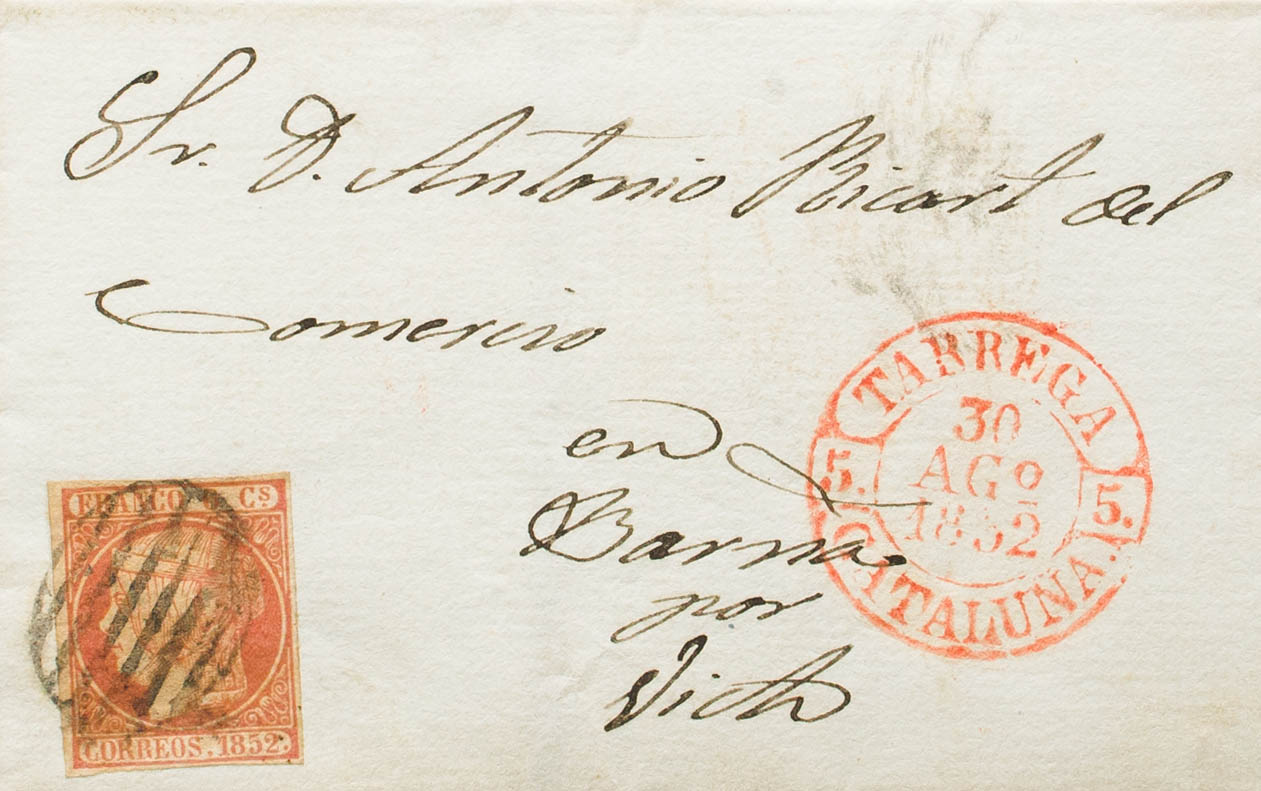 Sr. D. Antonio Ricart del
Comercio
en
Barna.
por
Vich
TARREGA
30
AGº
1852
5.
5.
CATALUNA.
FRANCO Cs
CORREOS. 1852.